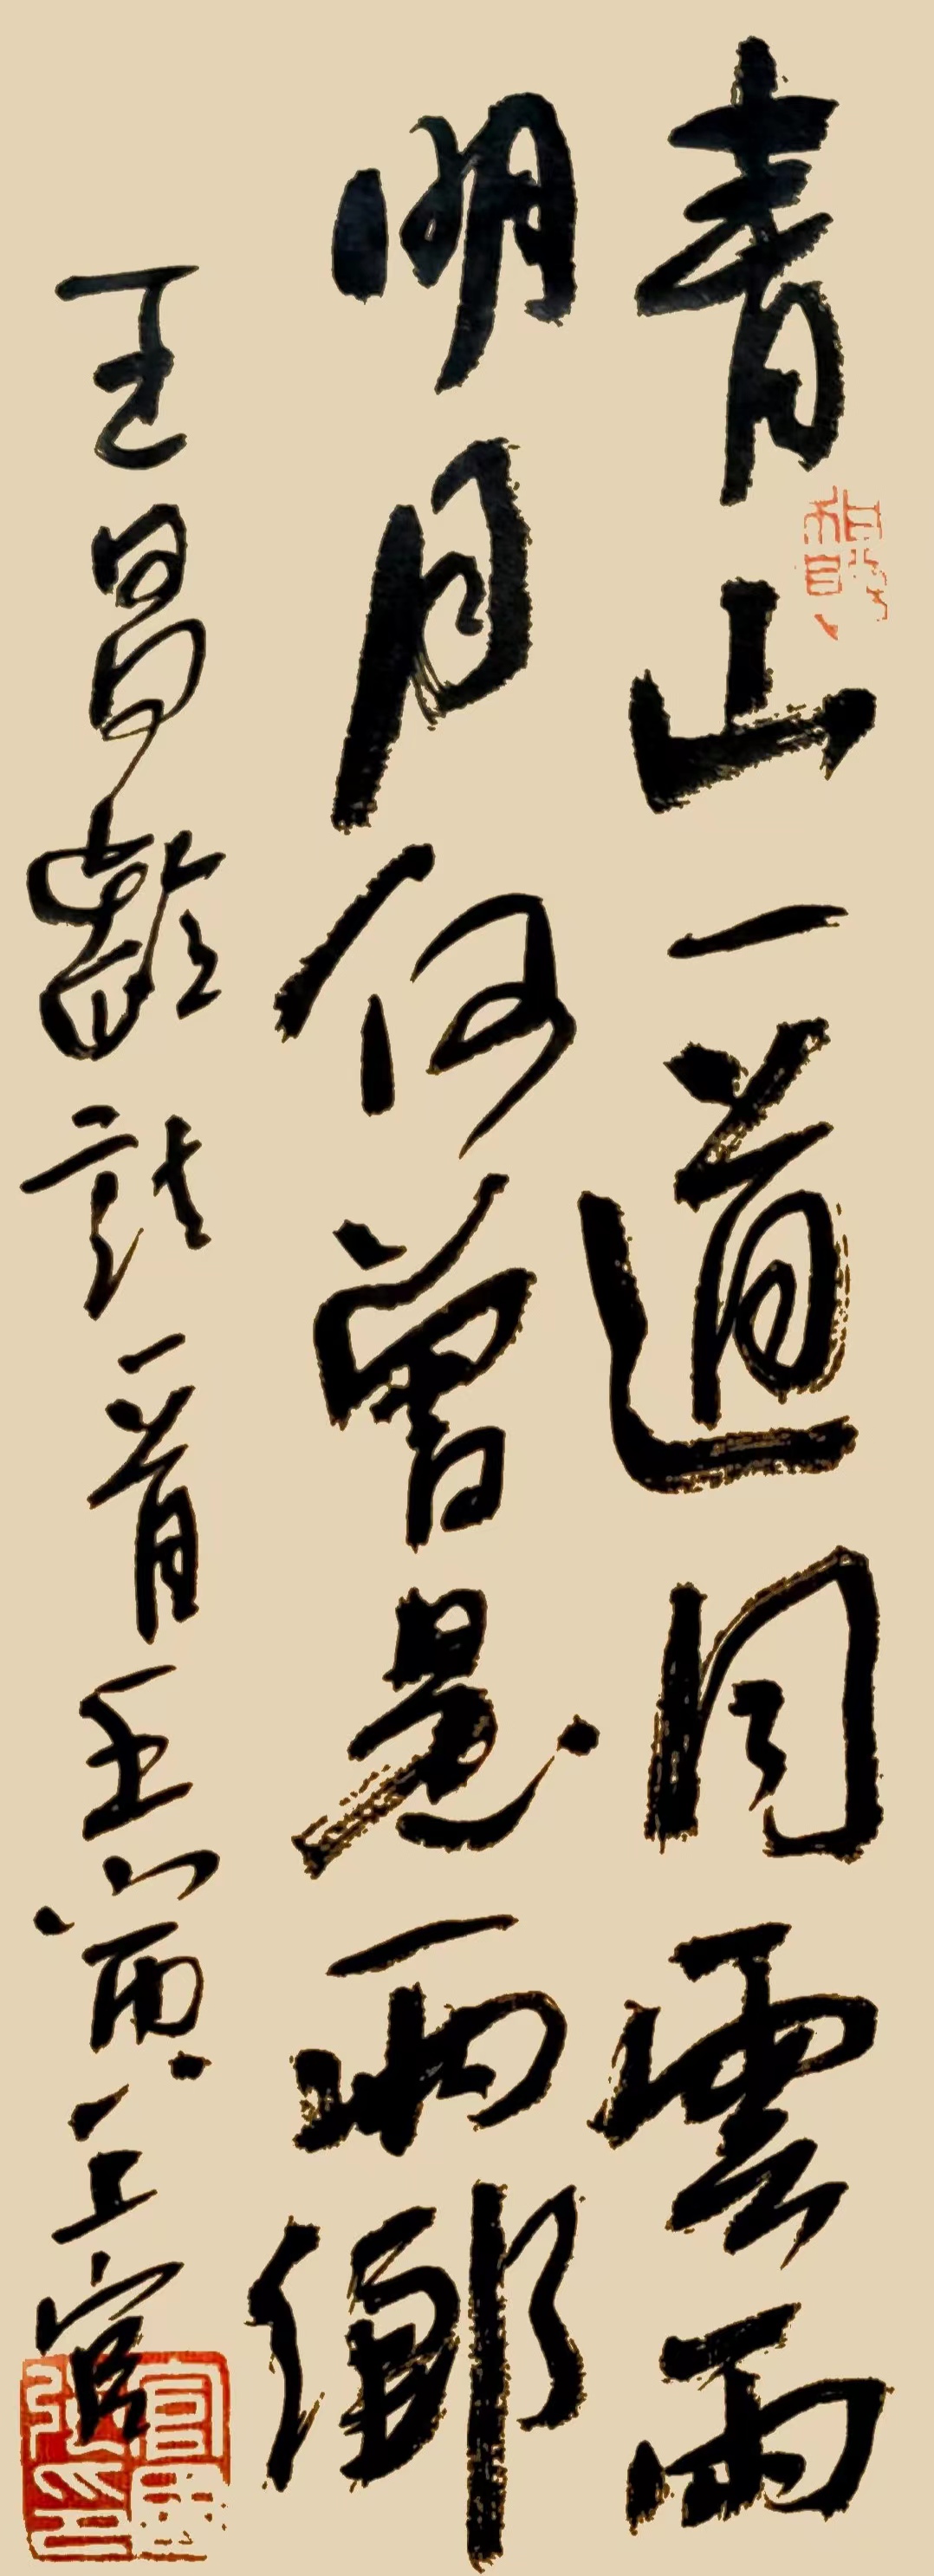 青山一道同雲雨
明月何曾是兩鄉
王昌齡詩一首壬寅上官